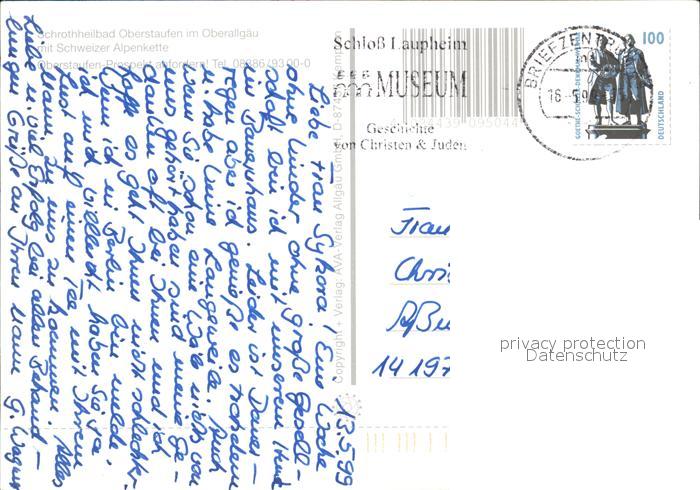 Schrothheilbad Oberstaufen im Oberallgäu
mit Schweizer Alpenkette
Oberstaufen-Prospekt anfordern! Tel. 08386/9300-0
Schloß Laupheim
MUSEUM
Geschichte
von Christen & Juden
BRIEFZENTRUM
16.-5.99
GOETHE-SCHILLER-DENKMAL WEIMAR
100
DEUTSCHLAND
4439 095044
Copyright + Verlag: AVA-Verlag Allgäu GmbH, D-874 Kempten
13.5.99
Liebe Frau Sykora! Eine Woche
ohne Kinder, ohne große Gesell-
schaft bin ich mit unserem Hund
im Bauernhaus. Leider ist Dauer-
regen aber ich genieße es trotzdem
u. habe keine Langeweile. Auch
wenn Sie schon eine Weile nichts von
uns gehört haben sind meine Ge-
danken oft bei Ihnen und ich
hoffe es geht Ihnen nicht schlechter.
Wenn ich in Berlin bin melde
ich mich vielleicht haben Sie ja
Lust auf einen Tee mit Ihrem
Mann zu uns zu kommen. Alles
Liebe u. viel Erfolg bei allen Behand-
lungen Grüße an Ihren Mann G. Wagner
Frau
Chri
14197
privacy protection
Datenschutz